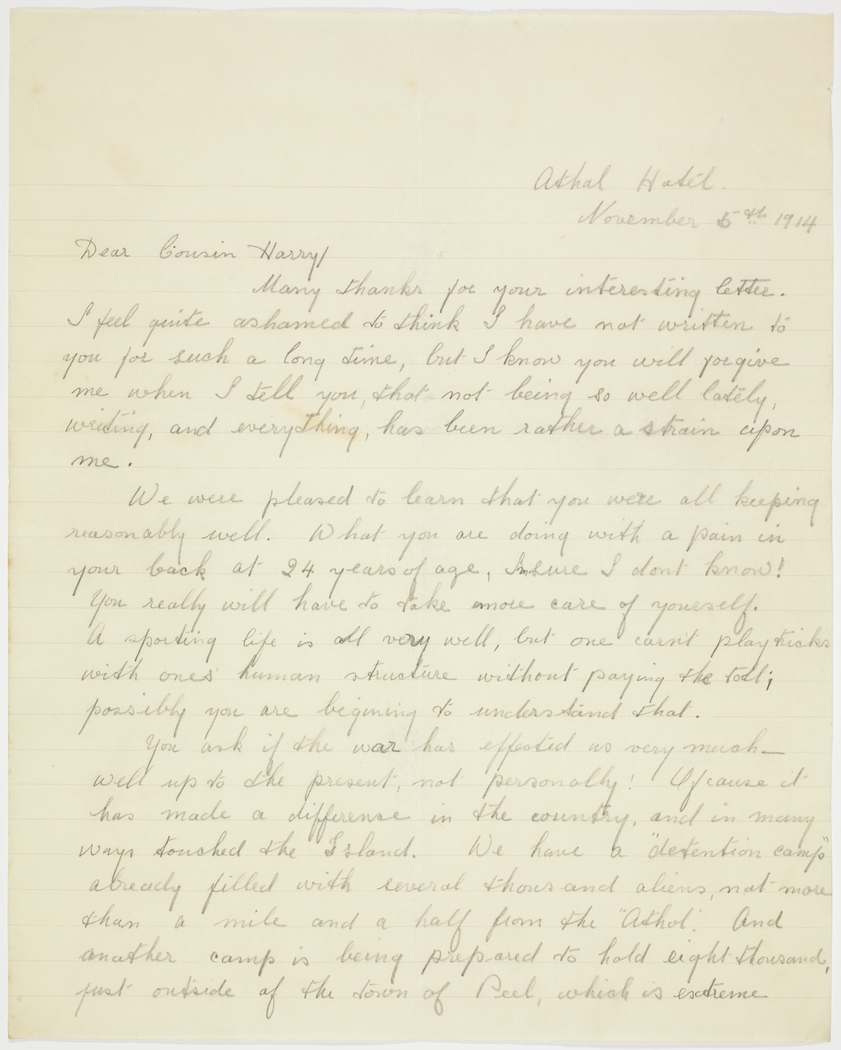 Athol Hotel.
November 5th 1914
Dear Cousin Harry/
Many thanks for your interesting letter.
I feel quite ashamed to think I have not written to
you for such a long time, but I know you will forgive
me when I tell you, that not being so well lately,
writing, and everything, has been rather a strain upon
me.
We were pleased to learn that you were all keeping
reasonably well. What you are doing with a pain in
your back at 24 years of age, I'm sure I dont know!
You really will have to take more care of yourself.
A sporting life is all very well, but one can't play tricks
with ones' human structure without paying the toll;
possibly you are begining to understand that.
You ask if the war has effected us very much—
well up to the present, not personally! Of cause it
has made a difference in the country, and in many
ways touched the Island. We have a "detention camp"
already filled with several thousand aliens, not more
than a mile and a half from the "Athol". And
another camp is being prepared to hold eight thousand,
just outside of the town of Peel, which is extreme